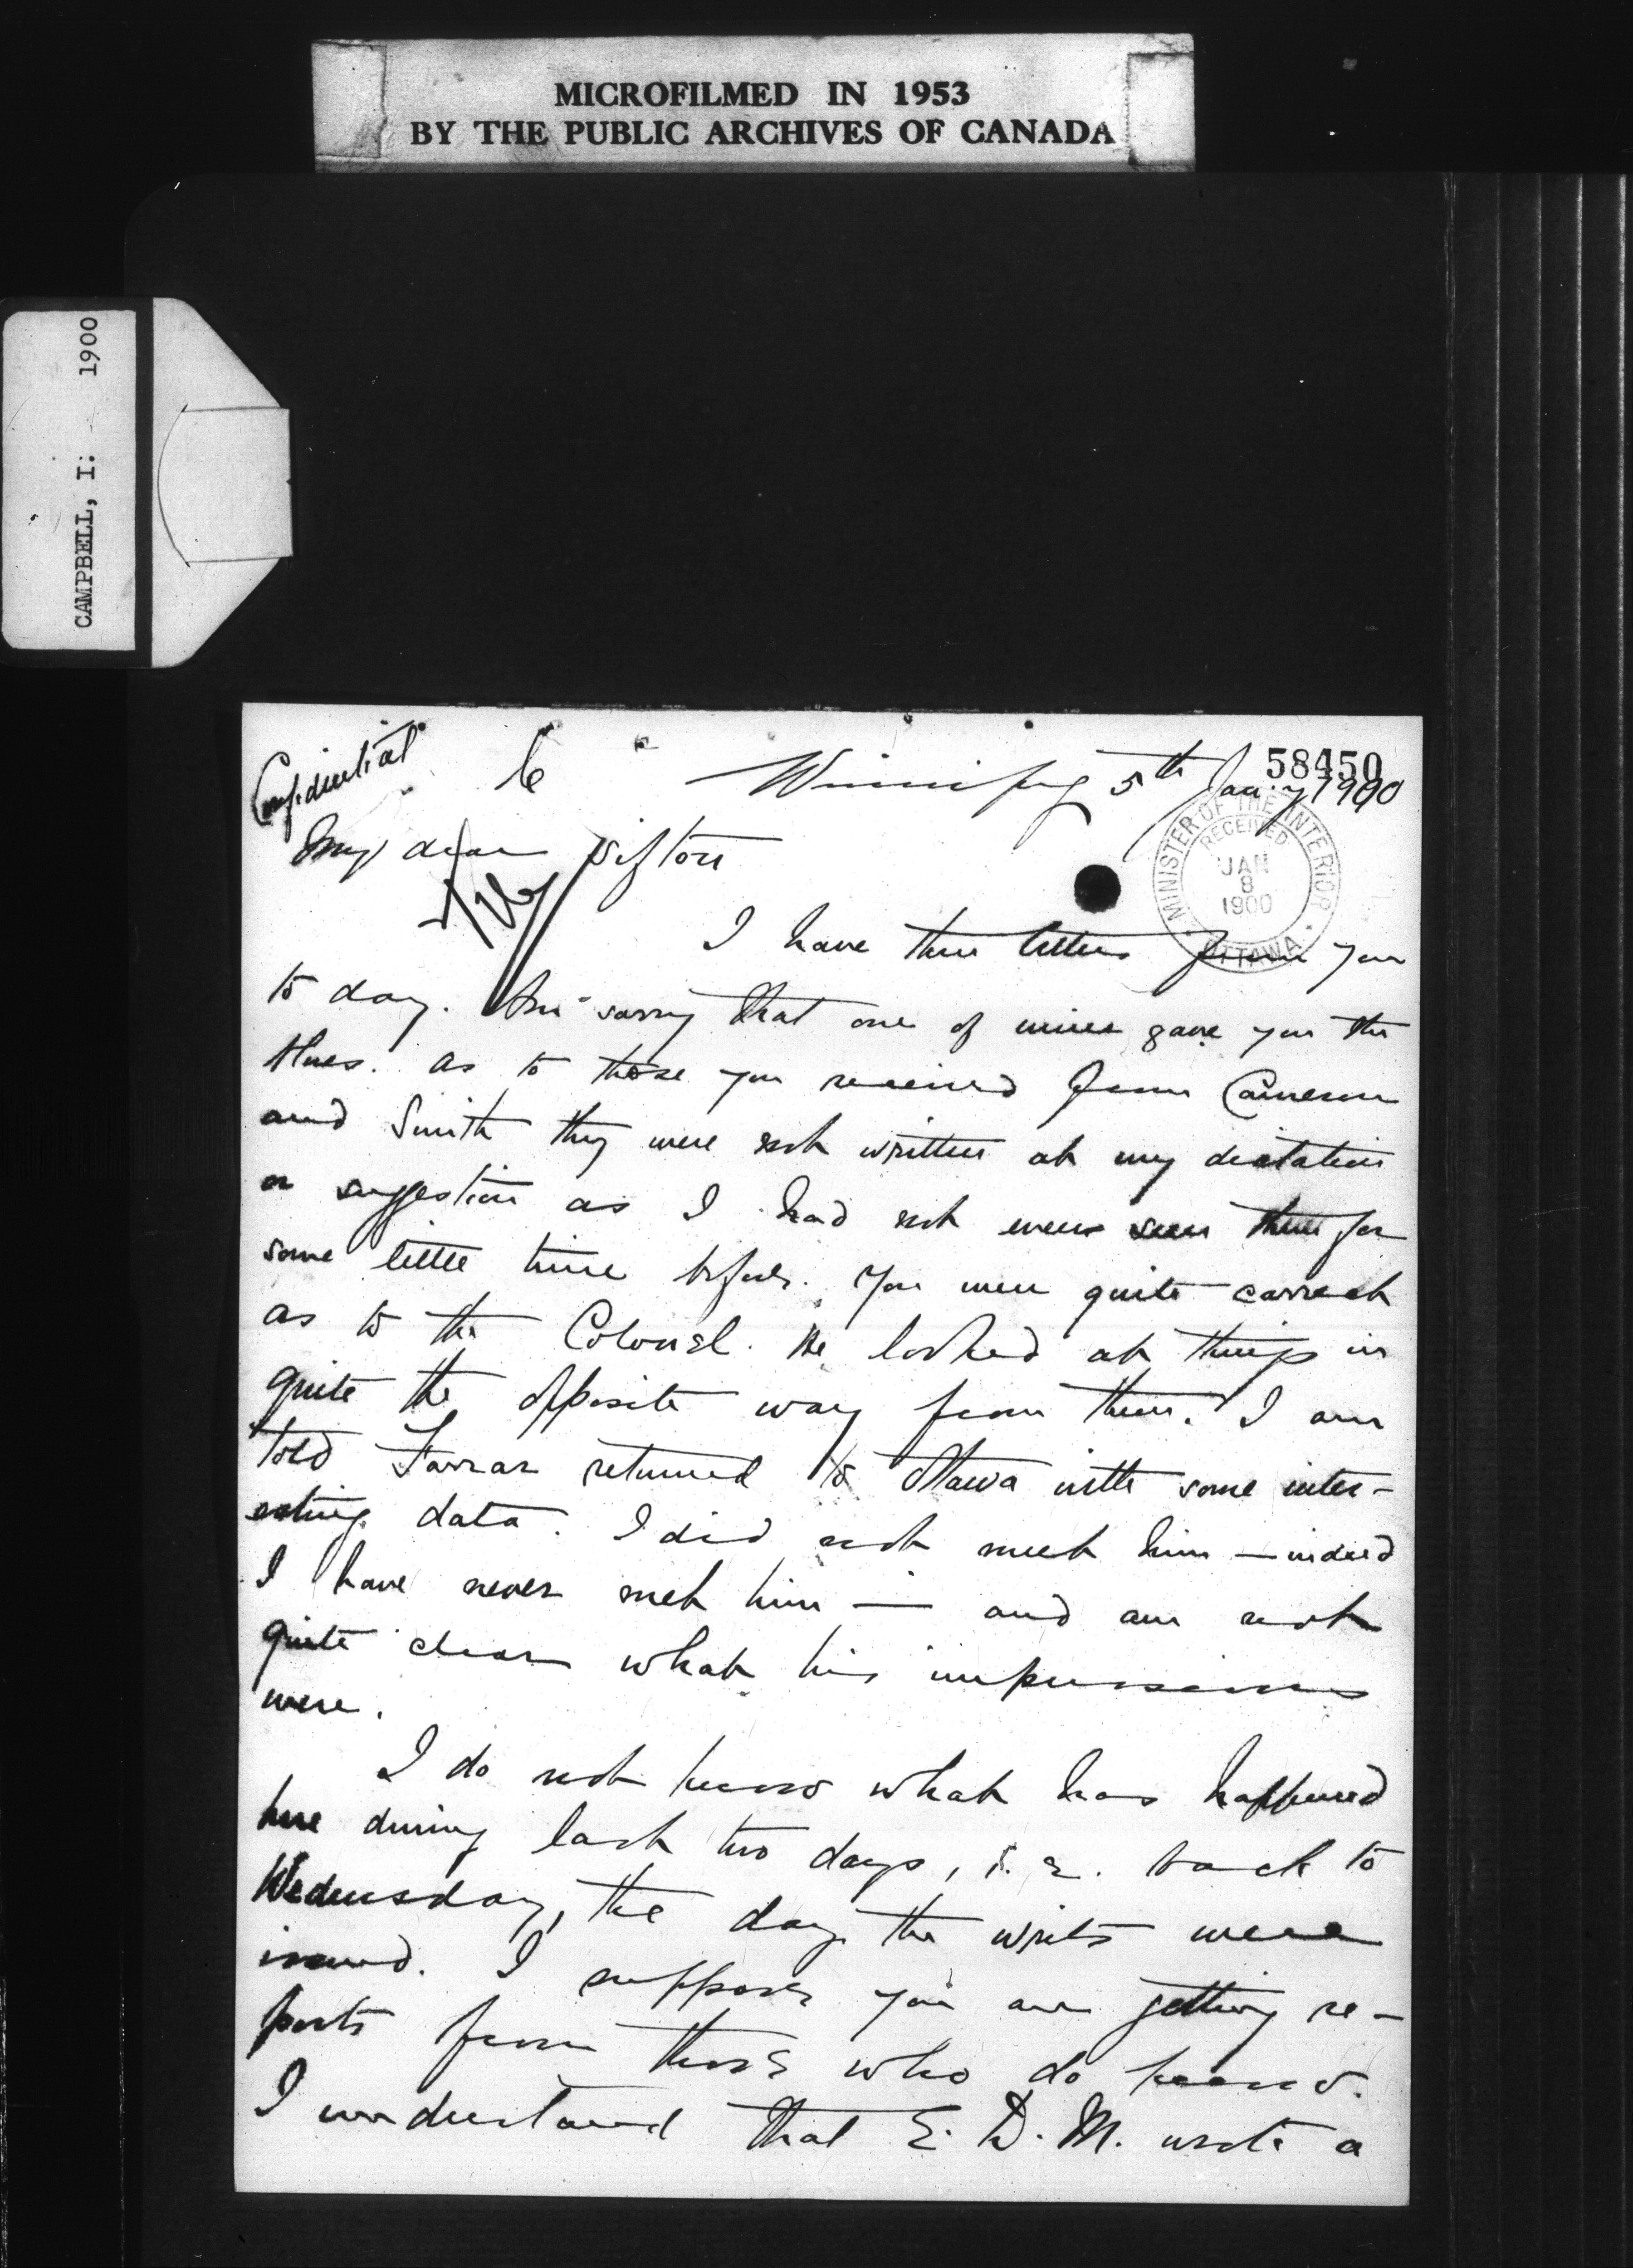 MICROFILMED IN 1953
BY THE PUBLIC ARCHIVES OF CANADA
CAMPBELL, I: 1900
58450
Confidential
Winnipeg 5th Jany 1900
My dear Sifton
MINISTER OF THE INTERIOR
RECEIVED
JAN
8
1900
OTTAWA
I have three letters from you
to day. Am sorry that one of mine gave you the
blues. As to those you received from Cameron
and Smith they were not written at my dictation
or suggestion as I had not even seen them for
some little time before. You were quite correct
as to the Colonel. He looked at things in
quite the opposite way from them. I am
told Farrar returned to Ottawa with some inter-
esting data. I did not meet him — indeed
I have never met him — and am not
quite clear what his impressions
were.
I do not know what has happened
here during last two days, i.e. back to
Wednesday, the day the writs were
issued. I suppose you are getting re-
ports from those who do know.
I understand that E. D. M. wrote a